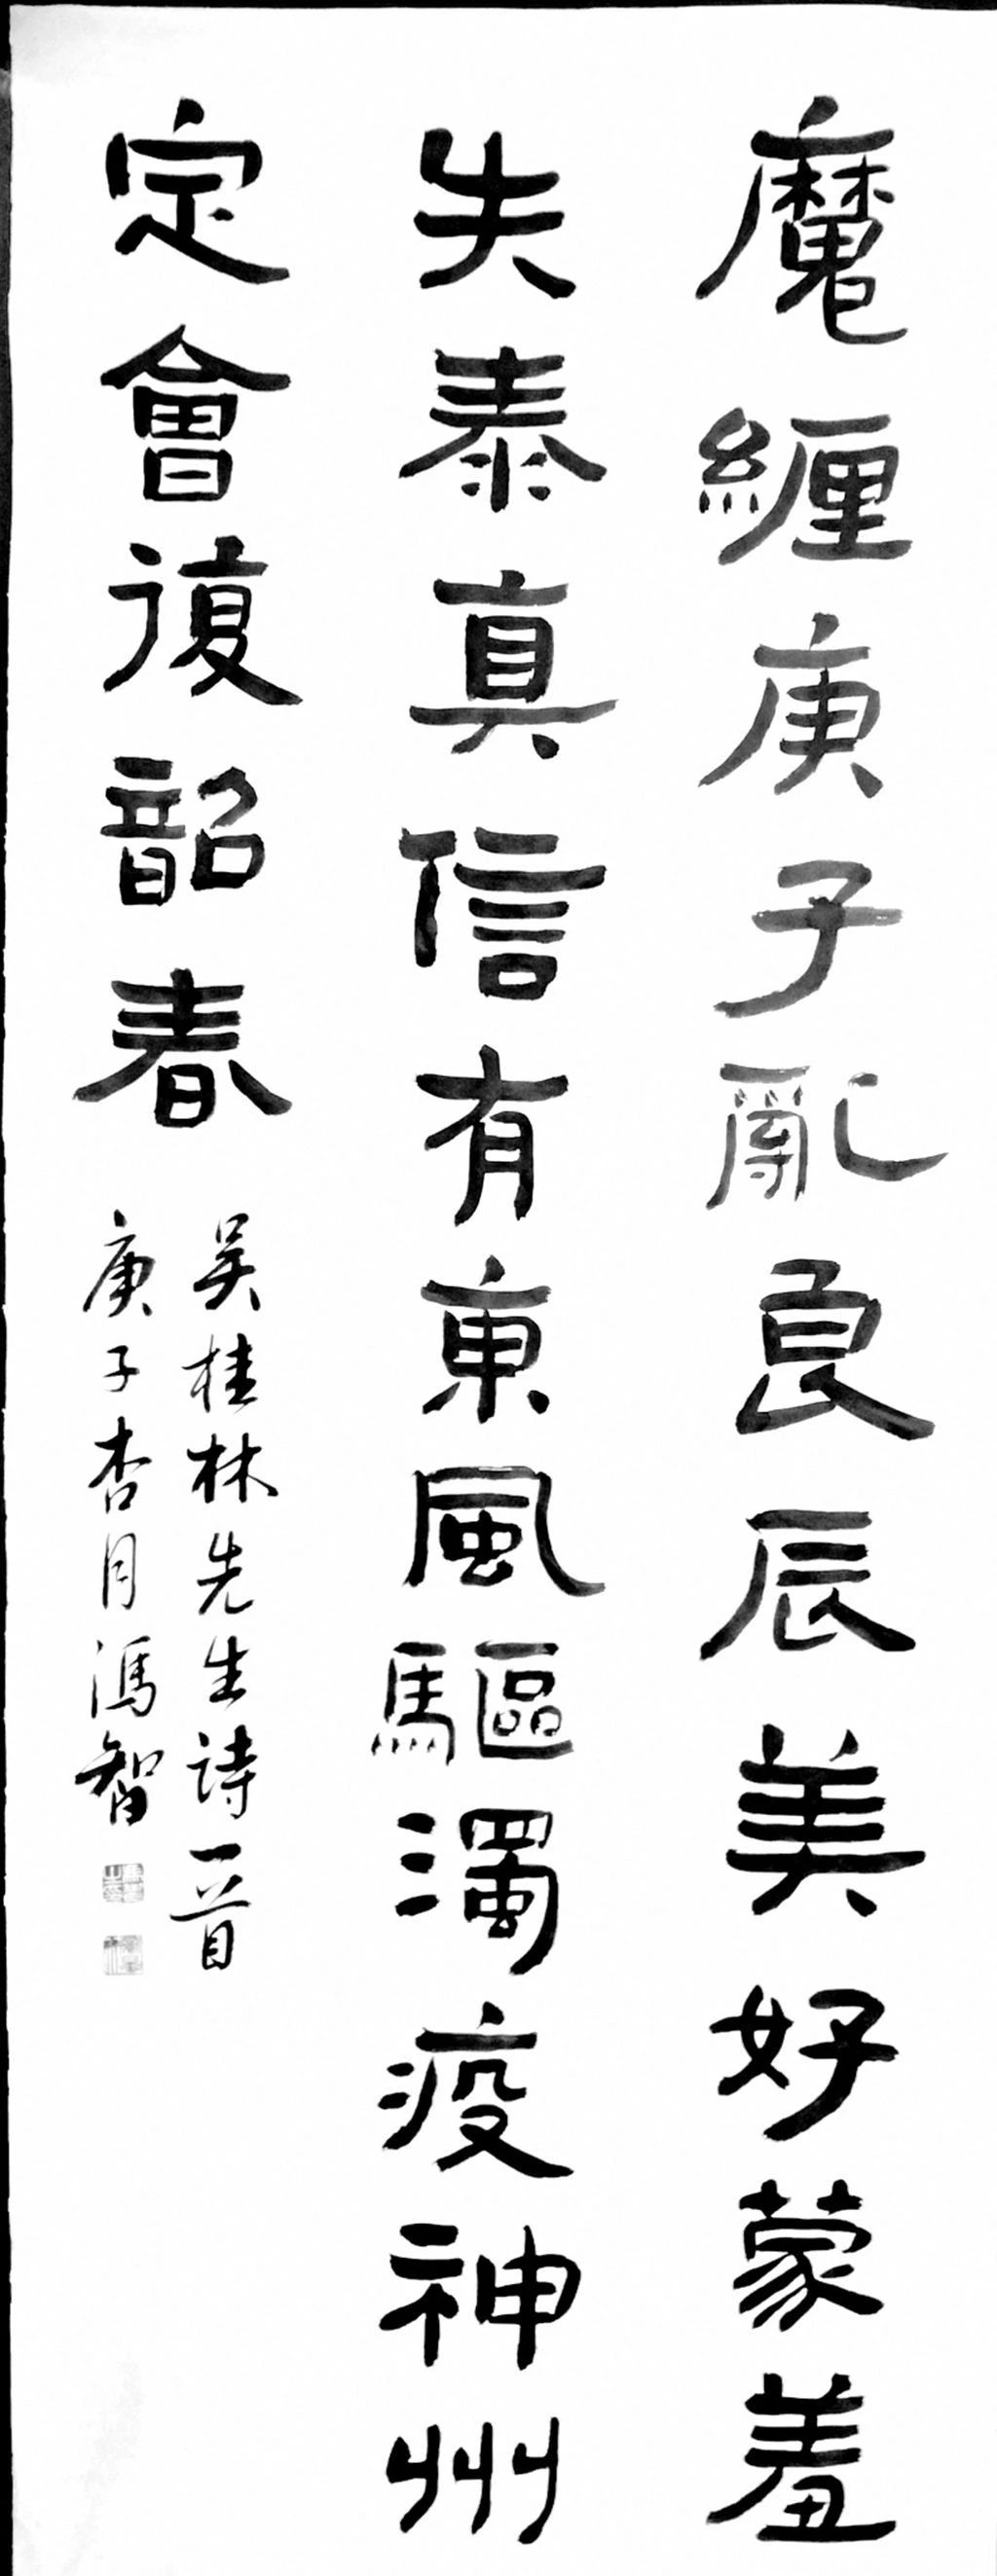 魔纏庚子亂良辰美好蒙羞
失泰真信有東風驅濁疫神州
定會復韶春
吳桂林先生詩一首
庚子杏月馮智